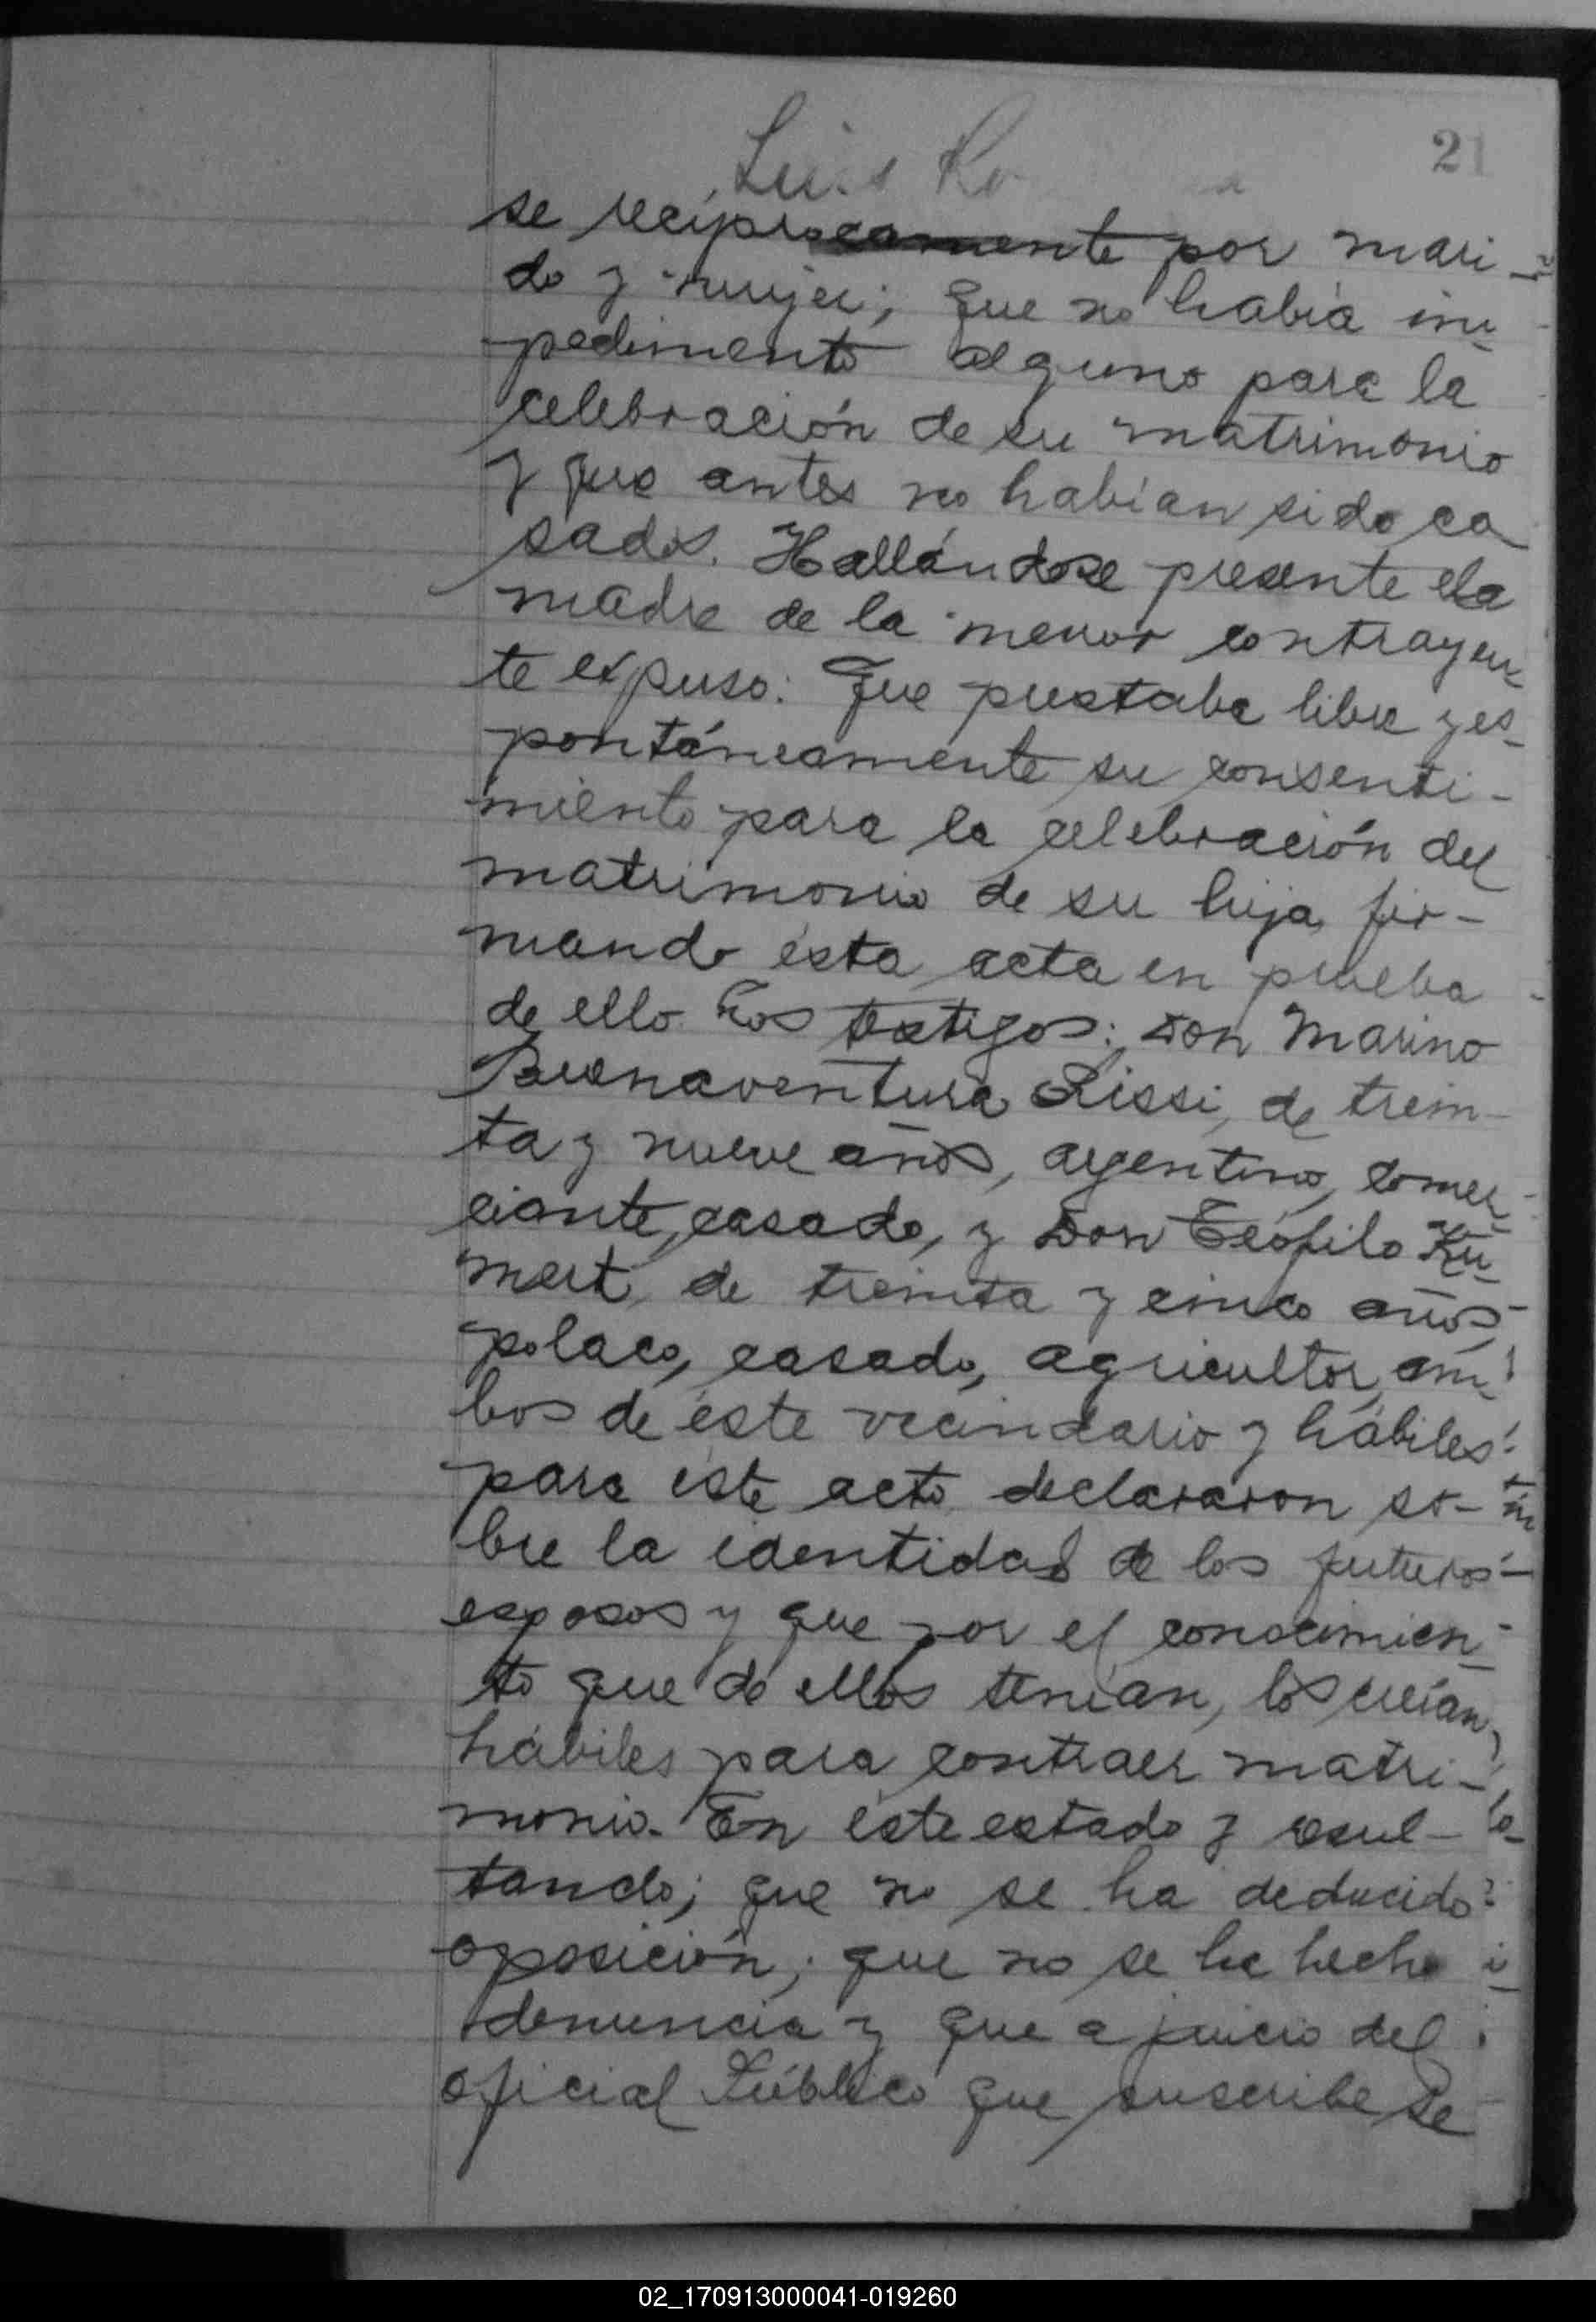 21
Luis
se recíprocamente por mari-
do y mujer; que no había im-
pedimento alguno para la
celebración de su matrimonio
y que antes no habían sido ca
sados. Hallándose presente la
madre de la menor contrayen-
te expuso: Que prestaba libre y es-
pontáneamente su consenti-
miento para la celebración del
matrimonio de su hija, fir-
mando ésta acta en prueba
de ello. Los testigos: Don Marino
Buenaventura Lissi, de trein-
ta y nueve años, argentino, comer-
ciante, casado, y Don Teófilo Ku-
mert, de treinta y cinco años,
polaco, casado, agricultor, am-
bos de éste vecindario y hábiles
para éste acto declararon so-
bre la identidad de los futuros
esposos y que por el conocimien-
to que de ellos tenían, los creían
hábiles para contraer matri-
monio. En éste estado y resul-
tando; que no se ha deducido
oposición; que no se ha hecho
denuncia y que a juicio del
oficial Público que suscribe se
02_170913000041-019260